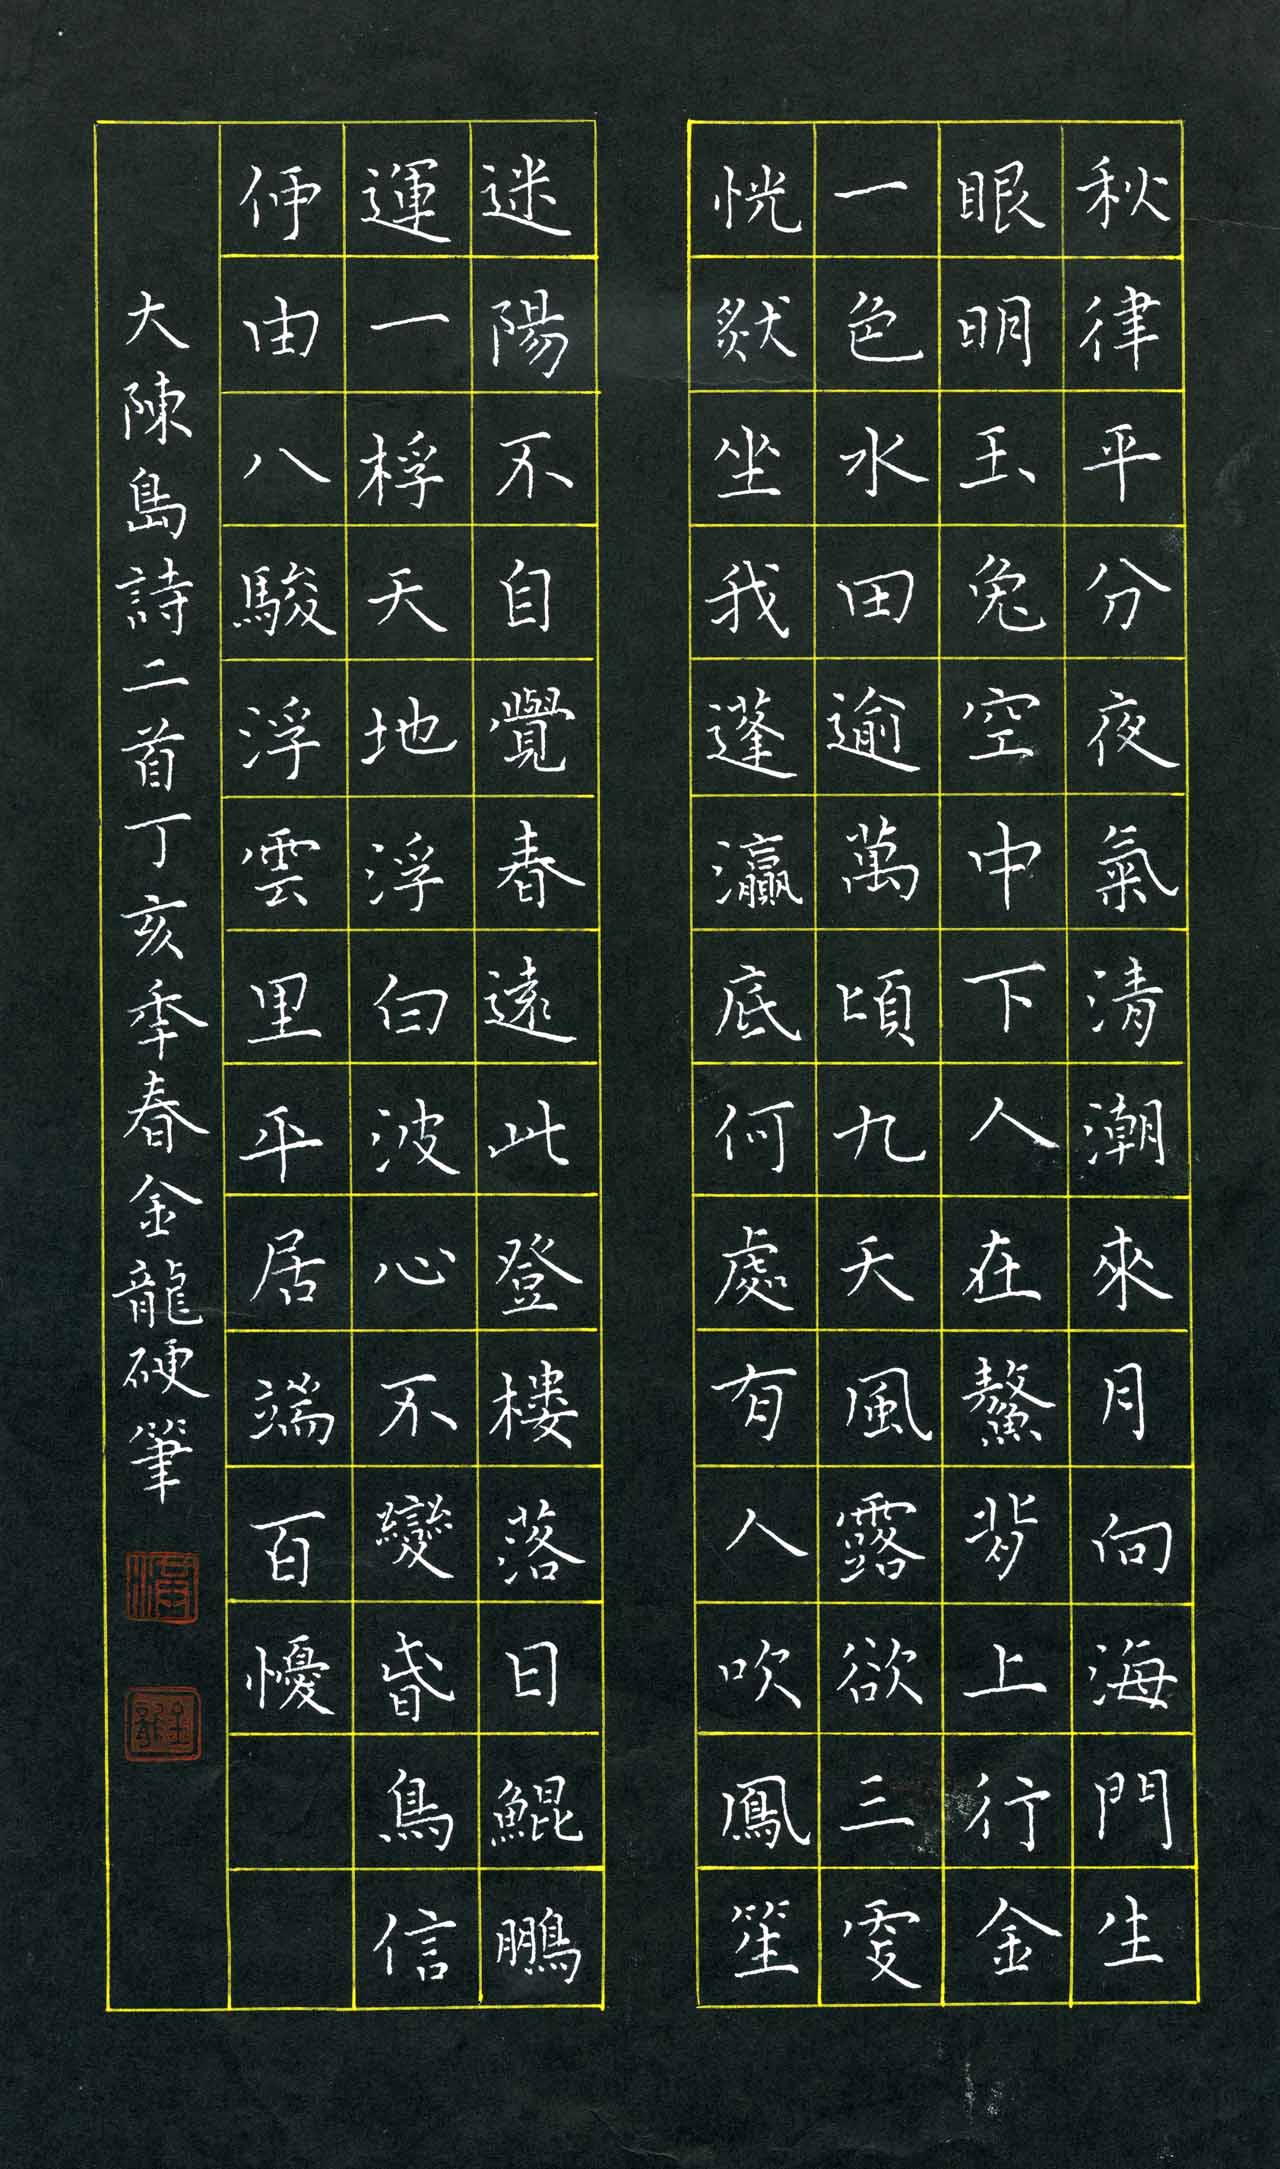 秋律平分夜氣清潮來月向海門生
眼明玉兔空中下人在鰲背上行金
一色水田逾萬頃九天風露欲三更
恍然坐我蓬瀛底何處有人吹鳳笙
迷陽不自覺春遠此登樓落日鯤鵬
運一桴天地浮白波心不變昏鳥信
伻由八駿浮雲里平居端百懮
大陳島詩二首丁亥秊春金龍硬筆